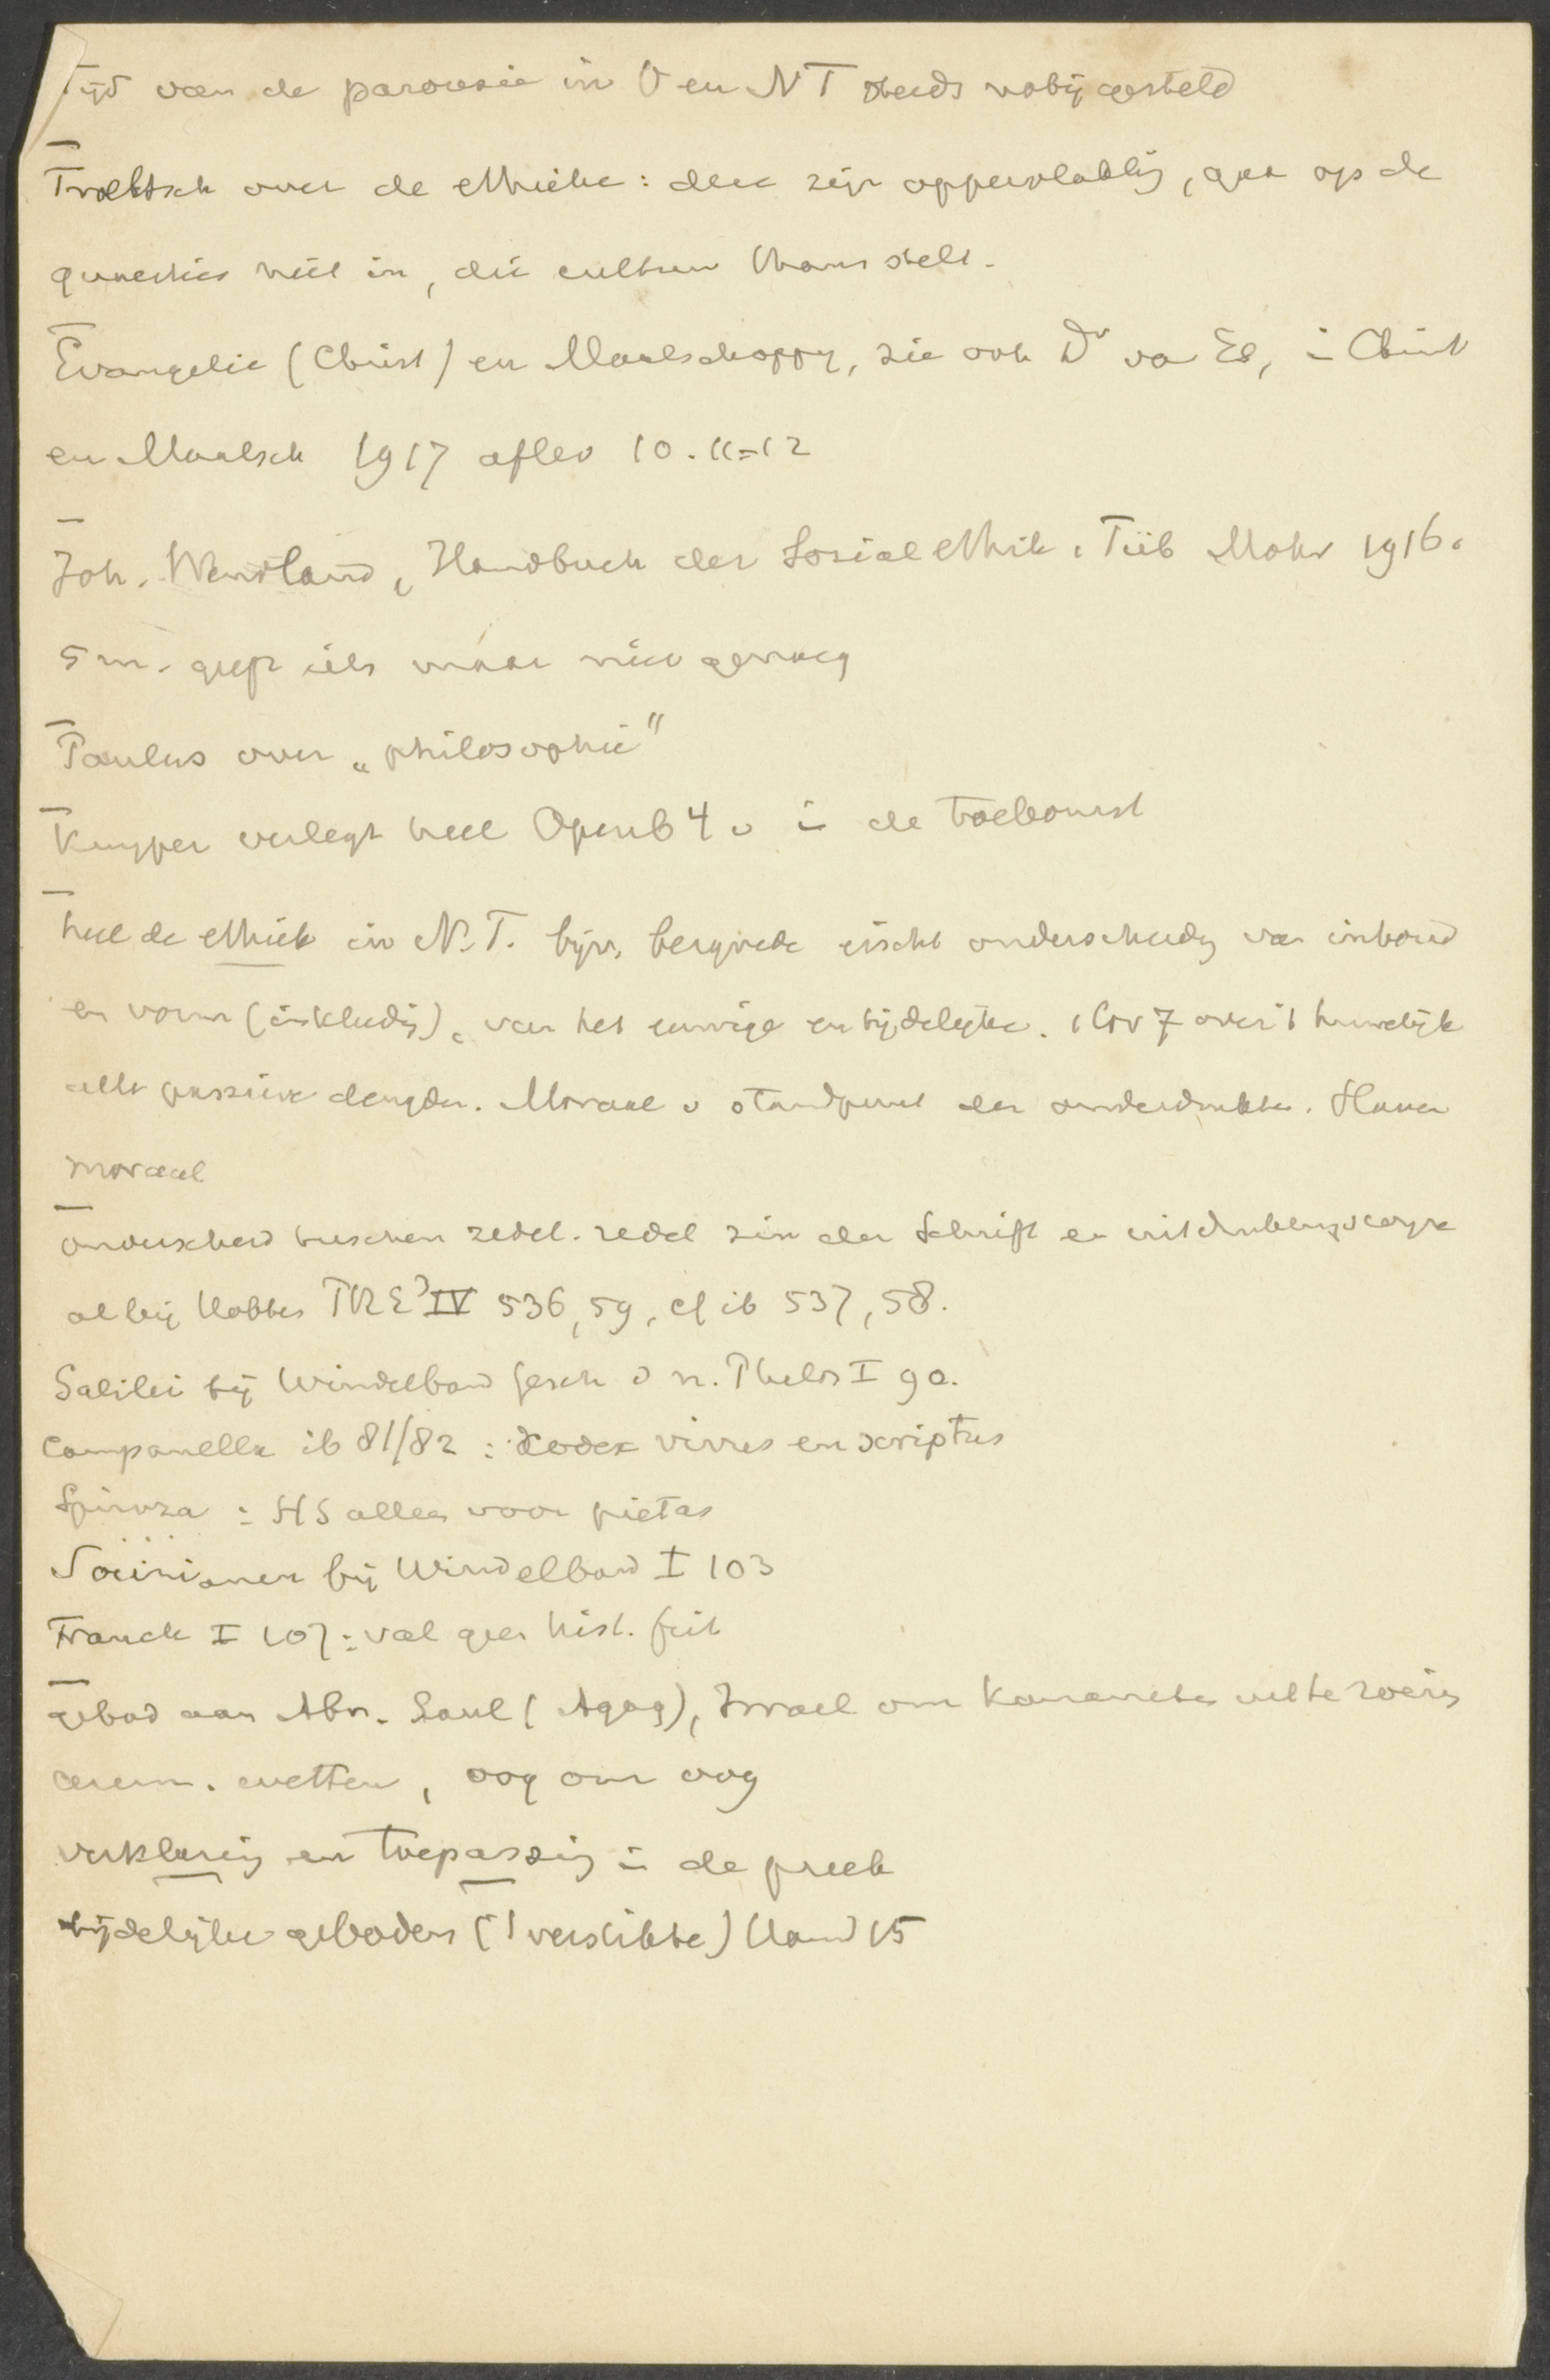 Tijd van de parousie in O en NT steeds nabij gesteld
Troeltsch over de ethiek: deze zijn oppervlakkig, gaan op de
quaesties niet in, die cultuur thans stelt.
Evangelie (Christ) en Maatschappy, zie ook Dr van Es, in Christ
en Maatsch 1917 aflev 10. 11=12
Joh. Wendland, Handbuch der Sozialethik, Tüb Mohr 1916.
5 m. geeft iets maar niet genoeg
Paulus over „philosophie"
Kuyper verlegt heel Openb 4 v in de toekomst
heel de ethiek in N.T. bijv. bergrede eischt onderscheidg van inhoud
en vorm (inkleedig), van het eeuwige en tijdelijke. 1 Cor 7 over 't huwelijk
alle passieve deugden. Moraal v standpunt der onderdrukten. Slaven
moraal
onderscheid tusschen zedel. redel zin der Schrift en uitdrukkingswyze
al bij Hobbes PRE³ IV 536,59, cf ib 537,58.
Galilei bij Windelband Gesch d n. Philos I 90.
Campanella ib 81/82 : Codex vivus en scriptus
Spinoza : HS alleen voor pietas
Socinianen bij Windelband I 103
Franck I 107: val geen hist. feit
gebod aan Abr. Saul (Agag), Israel om Kanaanieten uit te roeien
cerem. wetten, oog om oog
verklaring en toepassing in de preek
tijdelijke geboden ('t verstikte) Hand 15